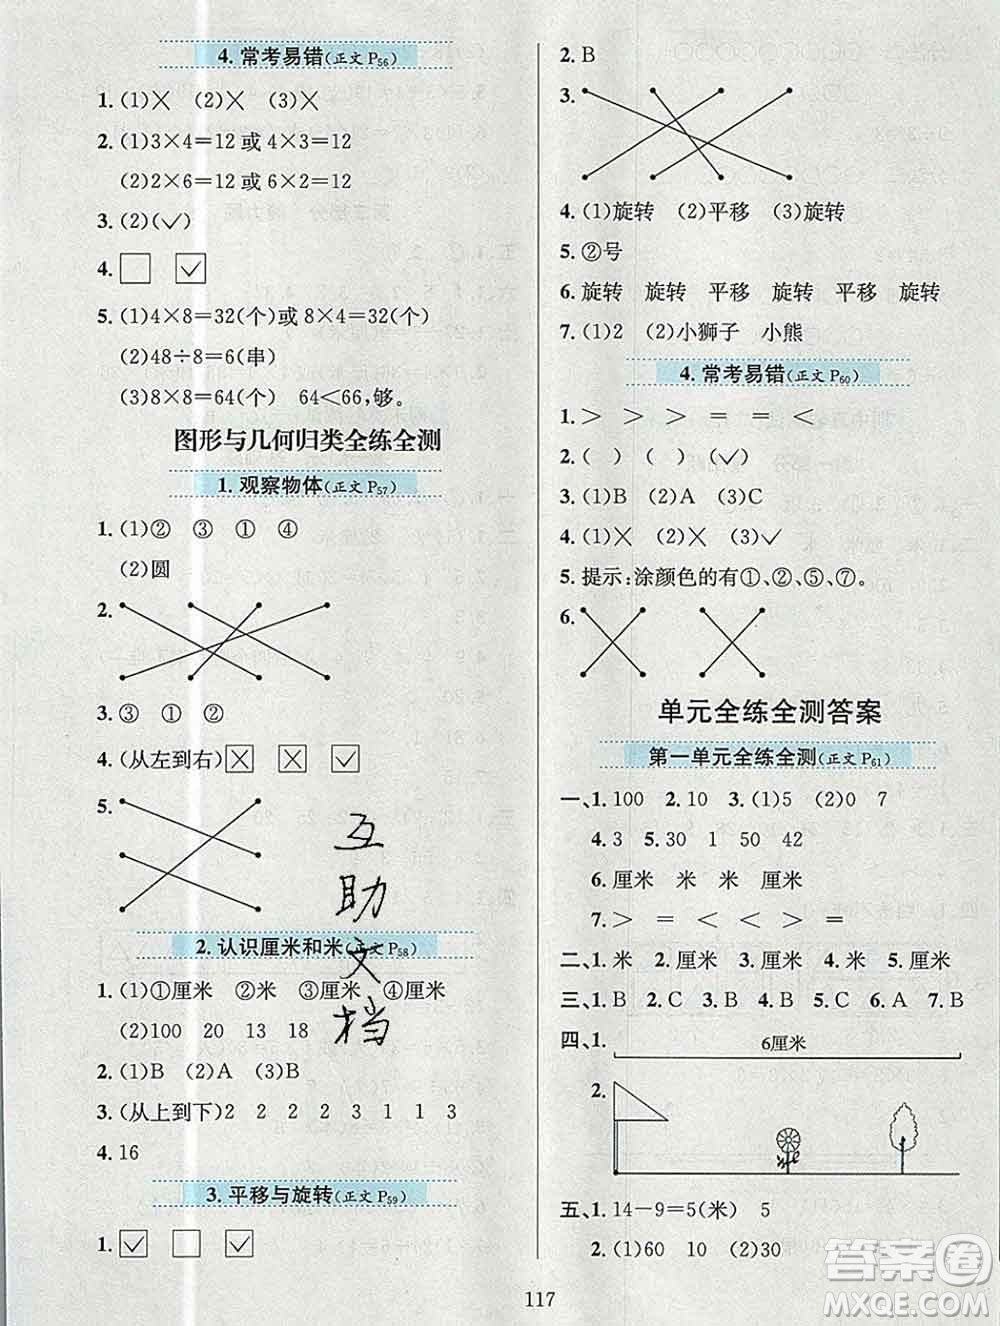 4. 常考易错(正文 P56)
1. (1)× (2)× (3)×
2. (1)3×4=12 或 4×3=12
(2)2×6=12 或 6×2=12
3. (2)(✓)
4. □ ☑
5. (1)4×8=32(个)或 8×4=32(个)
(2)48÷8=6(串)
(3)8×8=64(个) 64<66,够。
图形与几何归类全练全测
1. 观察物体(正文 P57)
1. (1)② ③ ① ④
(2)圆
2.
3. ③ ① ②
4. (从左到右)☒ ☒ ☑
5.
2. 认识厘米和米(正文 P58)
1. (1)①厘米 ②米 ③厘米 ④厘米
(2)100 20 13 18
2. (1)B (2)A (3)B
3. (从上到下)2 2 2 2 3 1 1 3
4. 16
3. 平移与旋转(正文 P59)
1. ☑ □ ☑
互
助
文
档
2. B
3.
4. (1)旋转 (2)平移 (3)旋转
5. ②号
6. 旋转 旋转 平移 旋转 平移 旋转
7. (1)2 (2)小狮子 小熊
4. 常考易错(正文 P60)
1. > > > = = <
2. ( ) ( ) (✓)
3. (1)B (2)A (3)C
4. (1)× (2)× (3)✓
5. 提示:涂颜色的有①、②、⑤、⑦。
6.
单元全练全测答案
第一单元全练全测(正文 P61)
一、1. 100 2. 10 3. (1)5 (2)0 7
4. 3 5. 30 1 50 42
6. 厘米 米 米 厘米
7. > = < < > =
二、1. 米 2. 厘米 3. 米 4. 米 5. 厘米
三、1. B 2. C 3. B 4. C 5. A 6. A 7. B
四、1. 6厘米
2.
五、1. 14-9=5(米) 5
2. (1)60 10 (2)30
117
答案圈
MXQE.COM